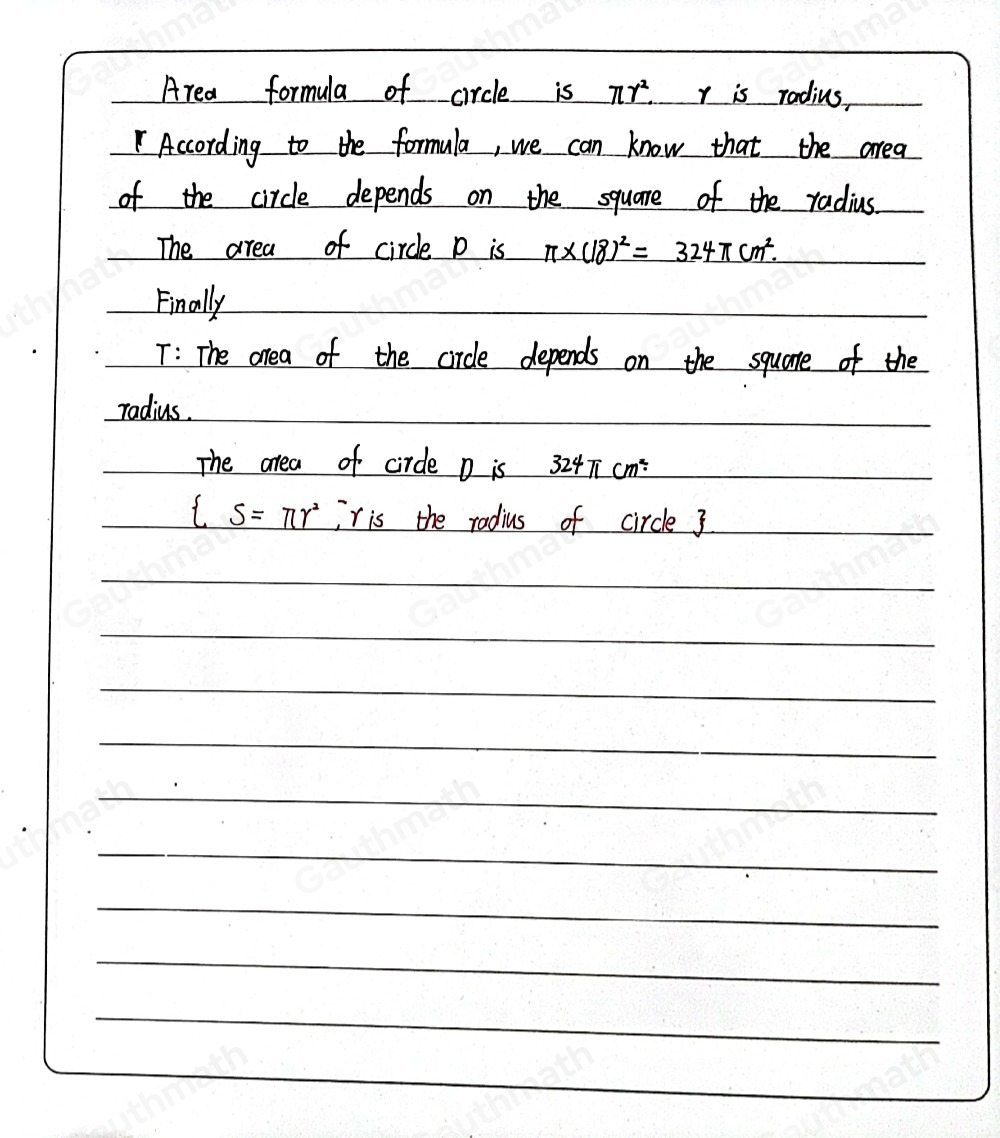 Area formula of circle is πr². r is radius,
According to the formula, we can know that the area
of the circle depends on the square of the radius.
The area of circle D is π×(18)² = 324π cm².
Finally
T: The area of the circle depends on the square of the
radius.
The area of circle D is 324π cm²
{ S = πr², r is the radius of circle }
Gauthmath